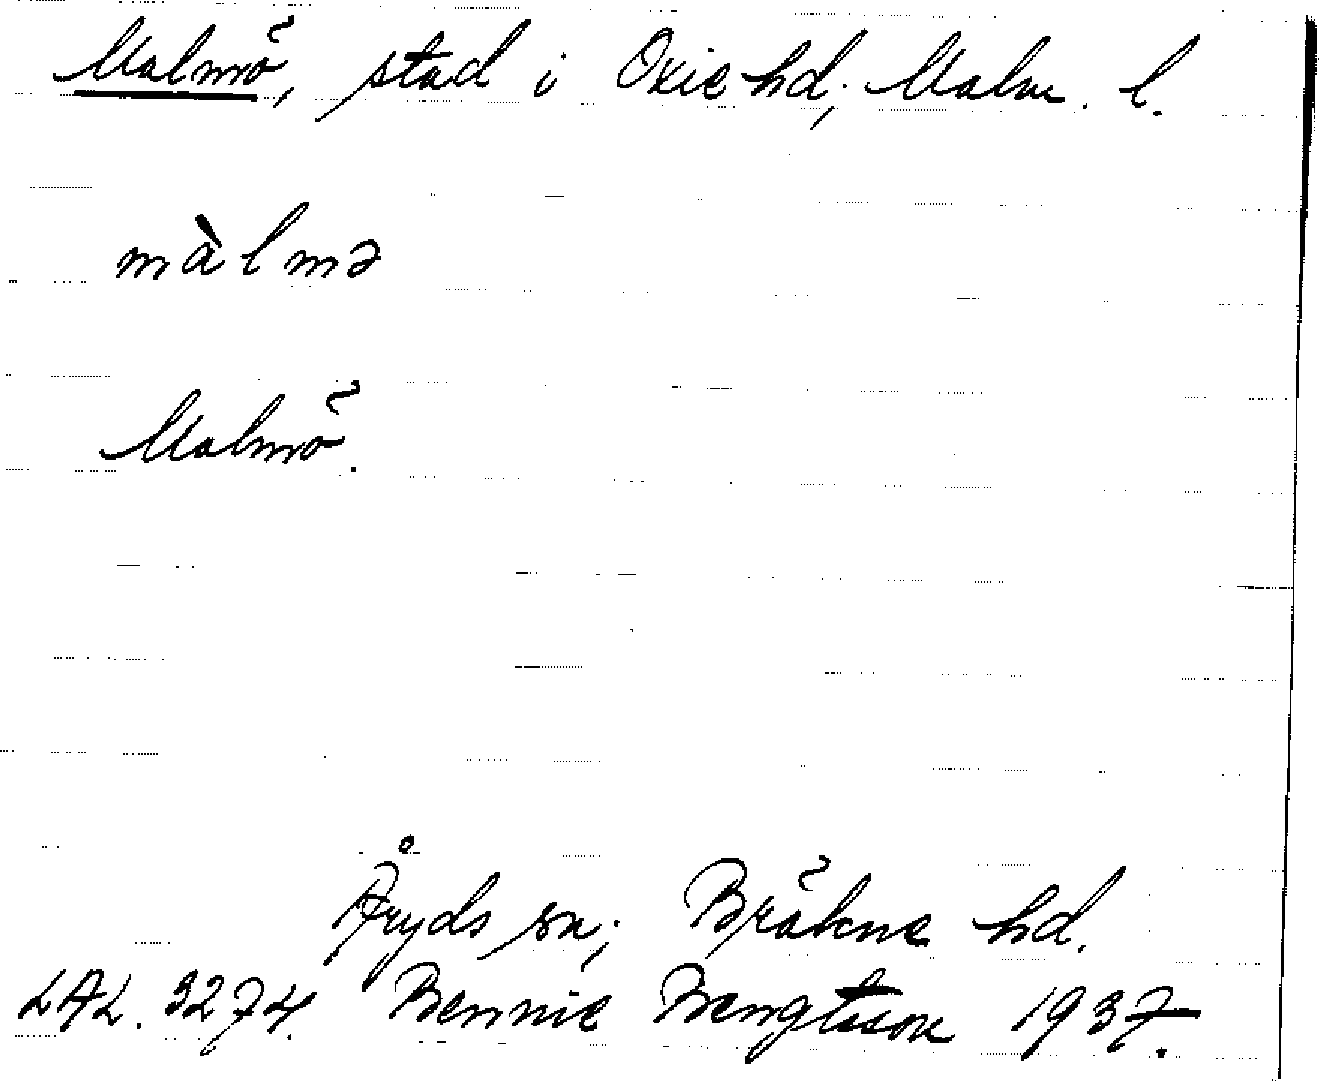 Malmö, stad i Oxie hd; Malm. l.
màlmə
Malmö.
Åryds sn; Bräkne hd.
LAL. 3274. Bennie Bengtsson 1937.